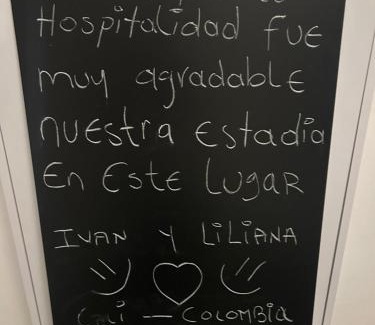 Hospitalidad fue
muy agradable
nuestra estadia
En Este Lugar
IVAN Y LILIANA
Cali — COLOMBIA